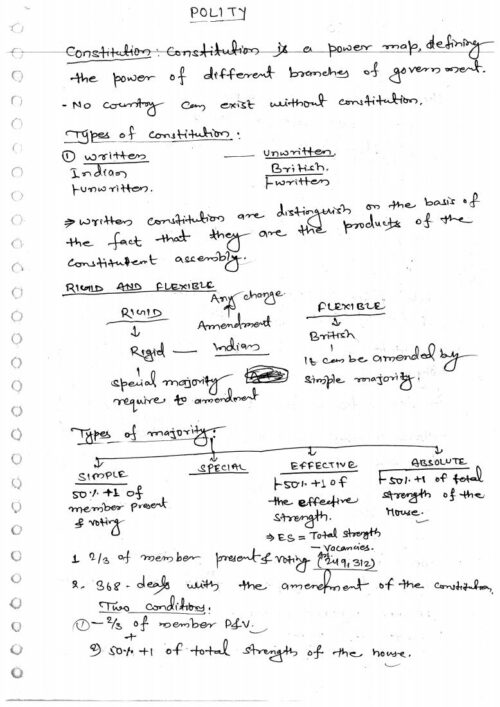 POLITY
Constitution: Constitution is a power map, defining
the power of different branches of government.
- No country can exist without constitution.
Types of constitution:
① written — unwritten
Indian British.
+unwritten. +written
⇒ written constitution are distinguish on the basis of
the fact that they are the products of the
constituent assembly.
RIGID AND FLEXIBLE
Any change
RIGID ↑ FLEXIBLE
↓ Amendment ↓
Rigid — Indian British
↓ It can be amended by
special majority simple majority.
require to amendment
Types of majority:
SIMPLE SPECIAL EFFECTIVE ABSOLUTE
50% +1 of member present & voting
50% +1 of the effective strength.
⇒ ES = Total strength
- vacancies.
50% +1 of total strength of the House.
1 2/3 of member present & voting (249, 312)
2. 368 - deals with the amendment of the constitution.
Two conditions.
① - 2/3 of member P&V.
+
2) 50% +1 of total strength of the house.